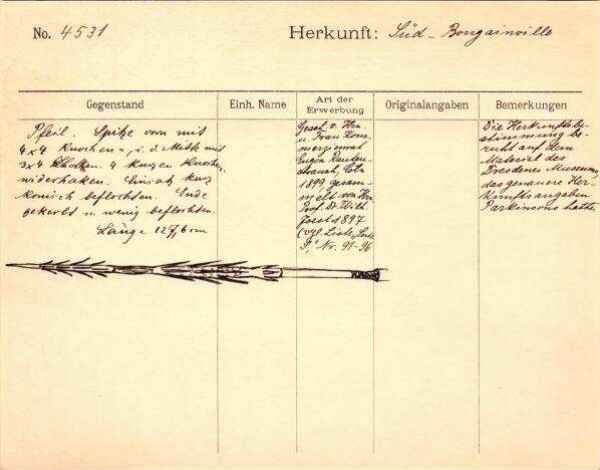 No. 4531
Herkunft: Süd-Bougainville
Gegenstand
Einh. Name
Art der
Erwerbung
Originalangaben
Bemerkungen
Pfeil. Spitze vorn mit
4 x 4 Knochen-, i. d. Mitte mit
3 x 4 Knochen. 4 kurzen Knochen-
widerhaken. Einsatz kurz
konisch beflochten. Ende
gekerbt u. wenig beflochten.
Länge 127,6 cm
Gesch. v. Hrn
u. Frau Kom-
merzienrat
Eugen Rauten-
strauch, Cöln
1899 gesam-
melt von Hrn
Prof. Dr. Wilh.
Joest 1897
(vgl. Liste, Seite
Nr. 91-96
Die Herkunftsbe-
stimmung be-
ruht auf dem
Material des
Dresdener Museums,
das genauere Her-
kunftsangaben
Parkinsons hatte.